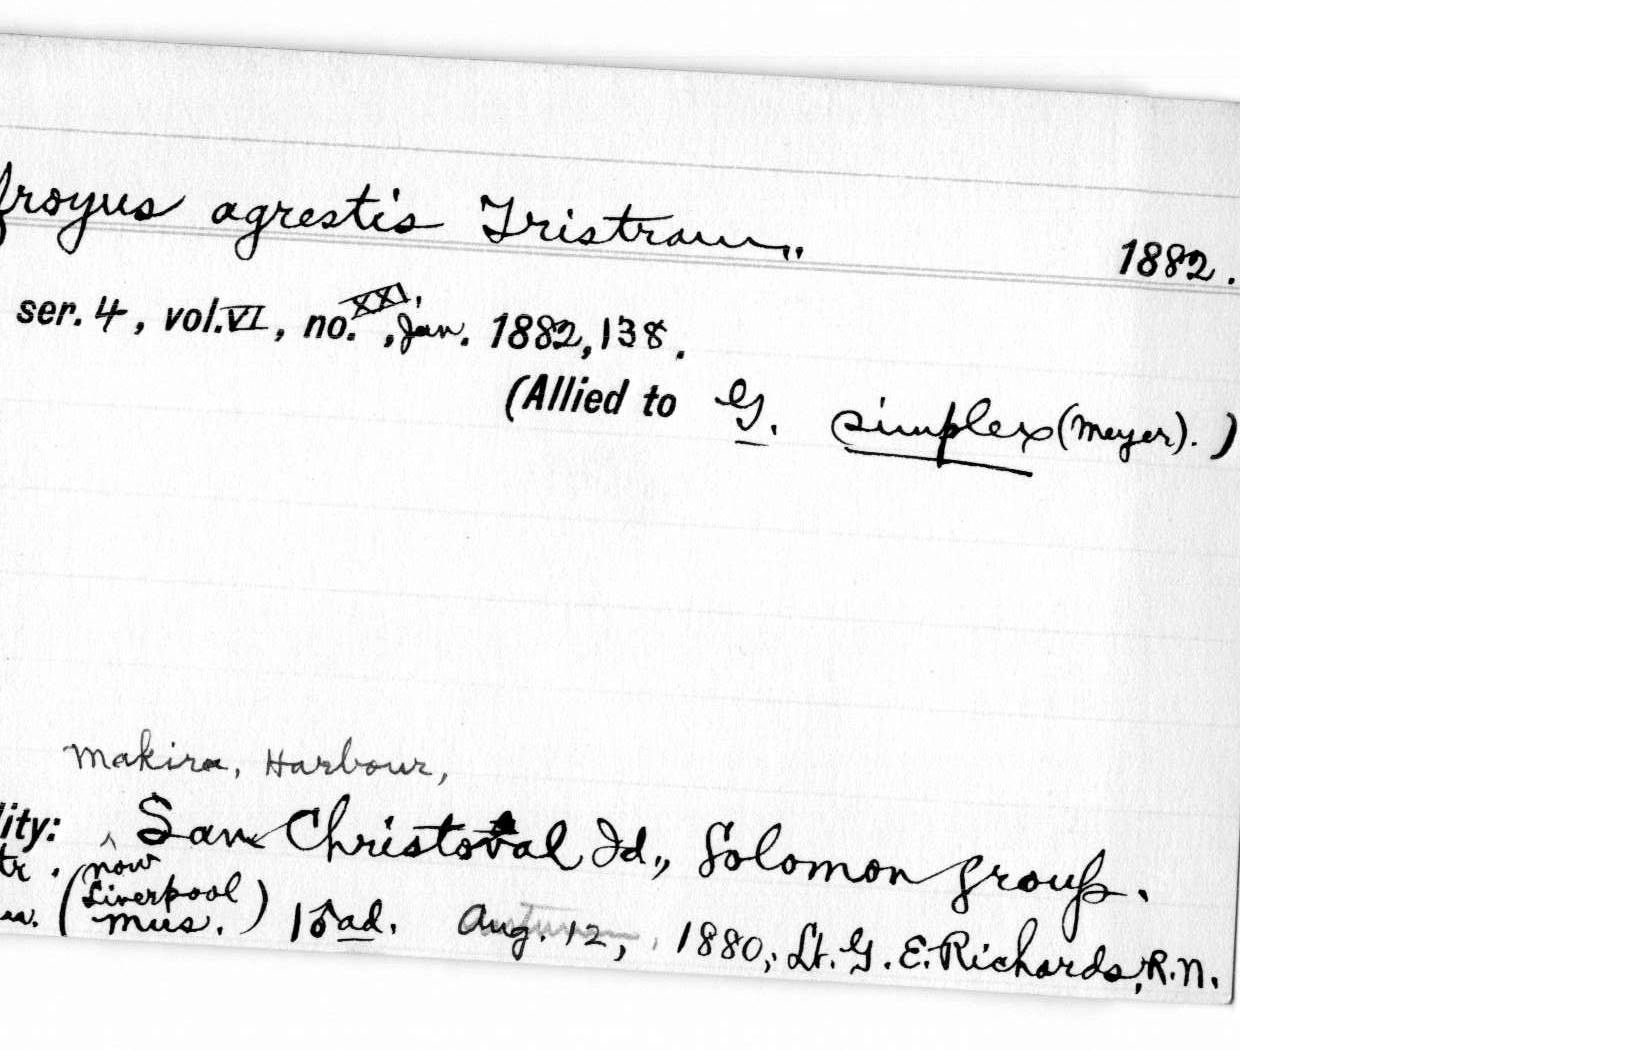 froyus agrestis Tristram,, 1882.
ser. 4, vol. VI, no. XXI, Jan. 1882, 138.
(Allied to G. simplex (Meyer).)
Makira, Harbour,
lity: ^ San Christoval Id., Solomon group.
tr. (now Liverpool Mus.) 1♂ ad. Aug. 12, 1880, Lt. G. E. Richards, R.N.